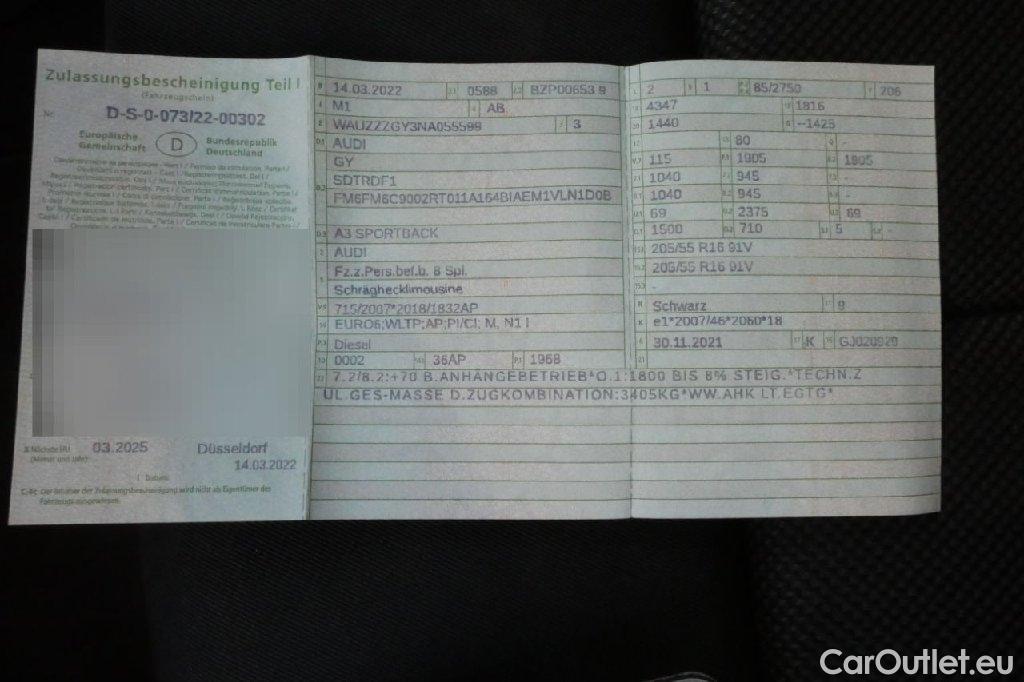 Zulassungsbescheinigung Teil I
(Fahrzeugschein)
Nr. D-S-0-073/22-00302
Europäische Gemeinschaft D Bundesrepublik Deutschland
X Nächste HU 03.2025 Düsseldorf
(Monat und Jahr) 14.03.2022
Datum
C.4c: Der Inhaber der Zulassungsbescheinigung wird nicht als Eigentümer des
Fahrzeugs ausgewiesen.
14.03.2022 0588 BZP00653 9
M1 AB
WAUZZZGY3NA055599 3
AUDI
GY
SDTRDF1
FM6FM6C9002RT011A164BIAEM1VLN1D0B
A3 SPORTBACK
AUDI
Fz.z.Pers.bef.b. 8 Spl.
Schräghecklimousine
715/2007*2018/1832AP
EURO6;WLTP;AP;PI/CI; M, N1 I
Diesel
0002 36AP 1968
7.2/8.2:+70 B.ANHÄNGEBETRIEB*O.1:1800 BIS 8% STEIG.*TECHN.Z
UL.GES-MASSE D.ZUGKOMBINATION:3405KG*WW.AHK LT.EGTG*
2 1 85/2750 206
4347 1816
1440 --1425
80 -
115 1905 1905
1040 945 -
1040 945 -
69 2375 69
1500 710 5 -
205/55 R16 91V
205/55 R16 91V
-
Schwarz 9
e1*2007/46*2060*18
30.11.2021 K GJ020929
CarOutlet.eu